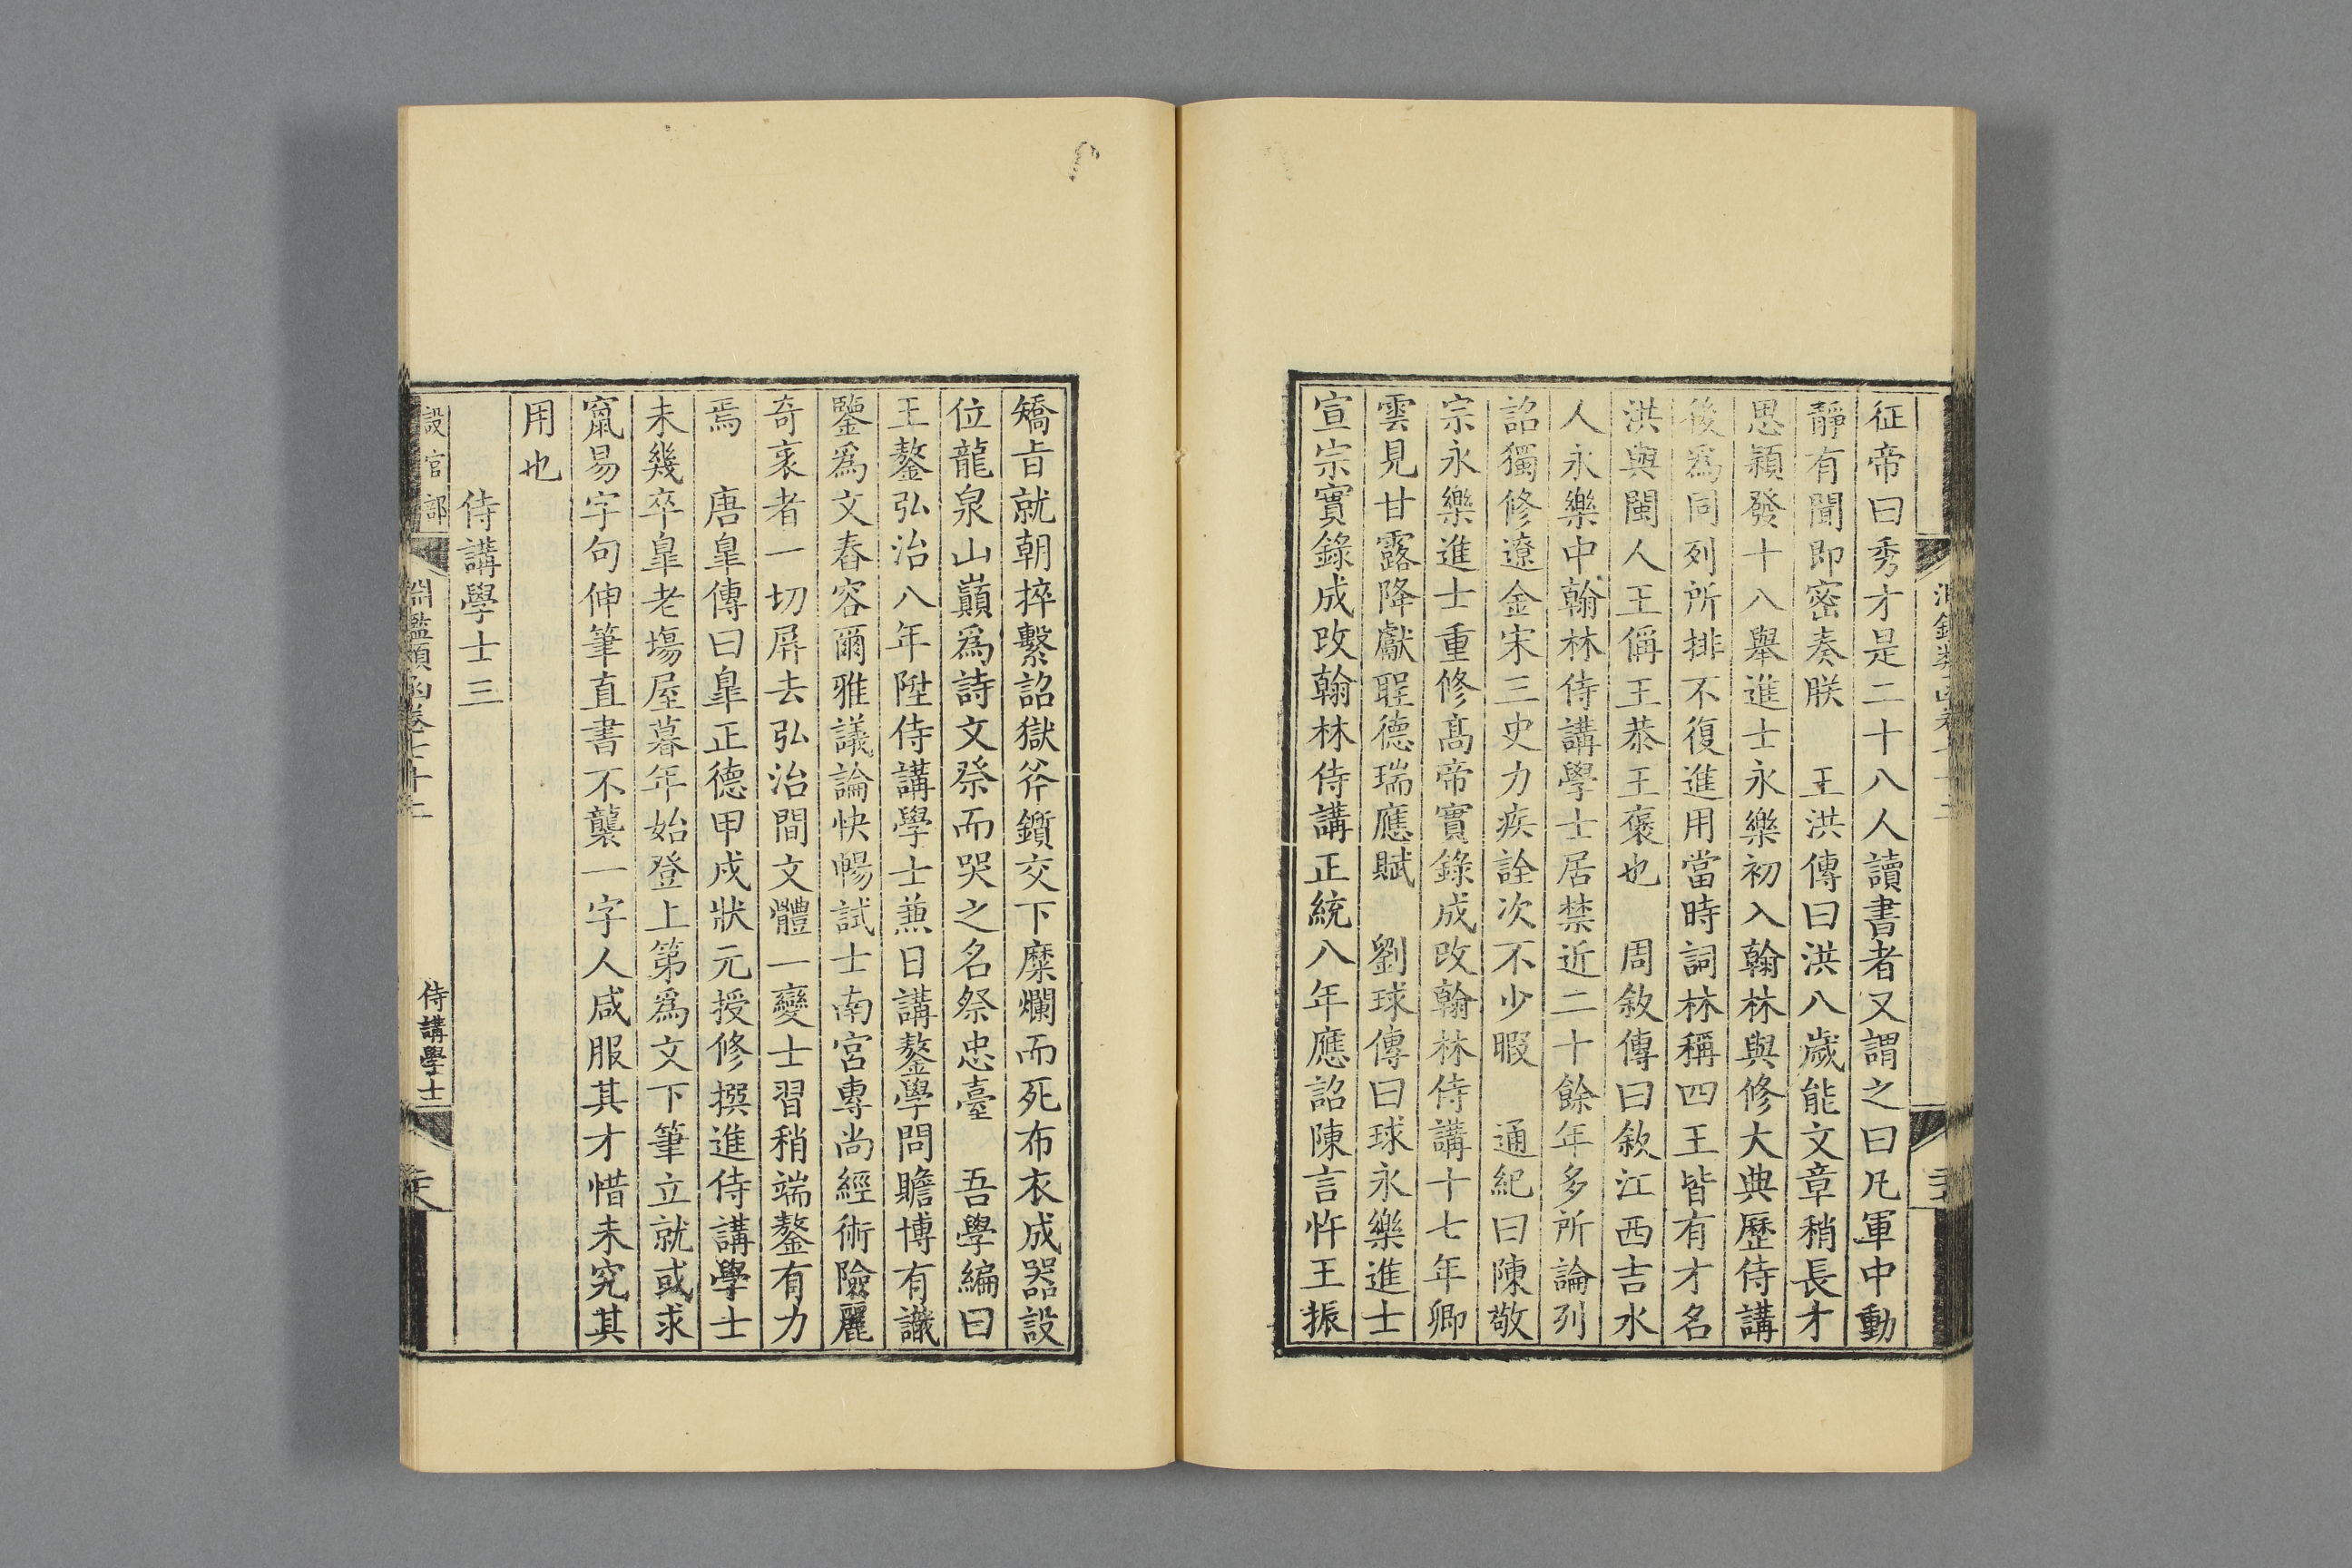 征帝曰秀才是二十八人讀書者又謂之曰凡軍中動
靜有聞即密奏朕　王洪傳曰洪八歲能文章稍長才
思穎發十八舉進士永樂初入翰林與修大典歷侍講
後爲同列所排不復進用當時詞林稱四王皆有才名
洪與閩人王偁王恭王褒也　周敘傳曰敘江西吉水
人永樂中翰林侍講學士居禁近二十餘年多所論列
詔獨修遼金宋三史力疾詮次不少暇　通紀曰陳敬
宗永樂進士重修髙帝實錄成改翰林侍講十七年卿
雲見甘露降獻聖德瑞應賦　劉球傳曰球永樂進士
宣宗實錄成改翰林侍講正統八年應詔陳言忤王振
矯旨就朝捽繫詔獄斧鑕交下糜爛而死布衣成器設
位龍泉山巔爲詩文祭而哭之名祭忠臺　吾學編曰
王鏊弘治八年陞侍講學士兼日講鏊學問贍博有識
鑒爲文舂容爾雅議論快暢試士南宮專尚經術險麗
奇袤者一切屏去弘治間文體一變士習稍端鏊有力
焉　唐皐傳曰皐正德甲戌狀元授修撰進侍講學士
未幾卒皐老塲屋暮年始登上第爲文下筆立就或求
竄易字句伸筆直書不襲一字人咸服其才惜未究其
用也
侍講學士三
設官部
淵鑑類函卷七十二
侍講學士